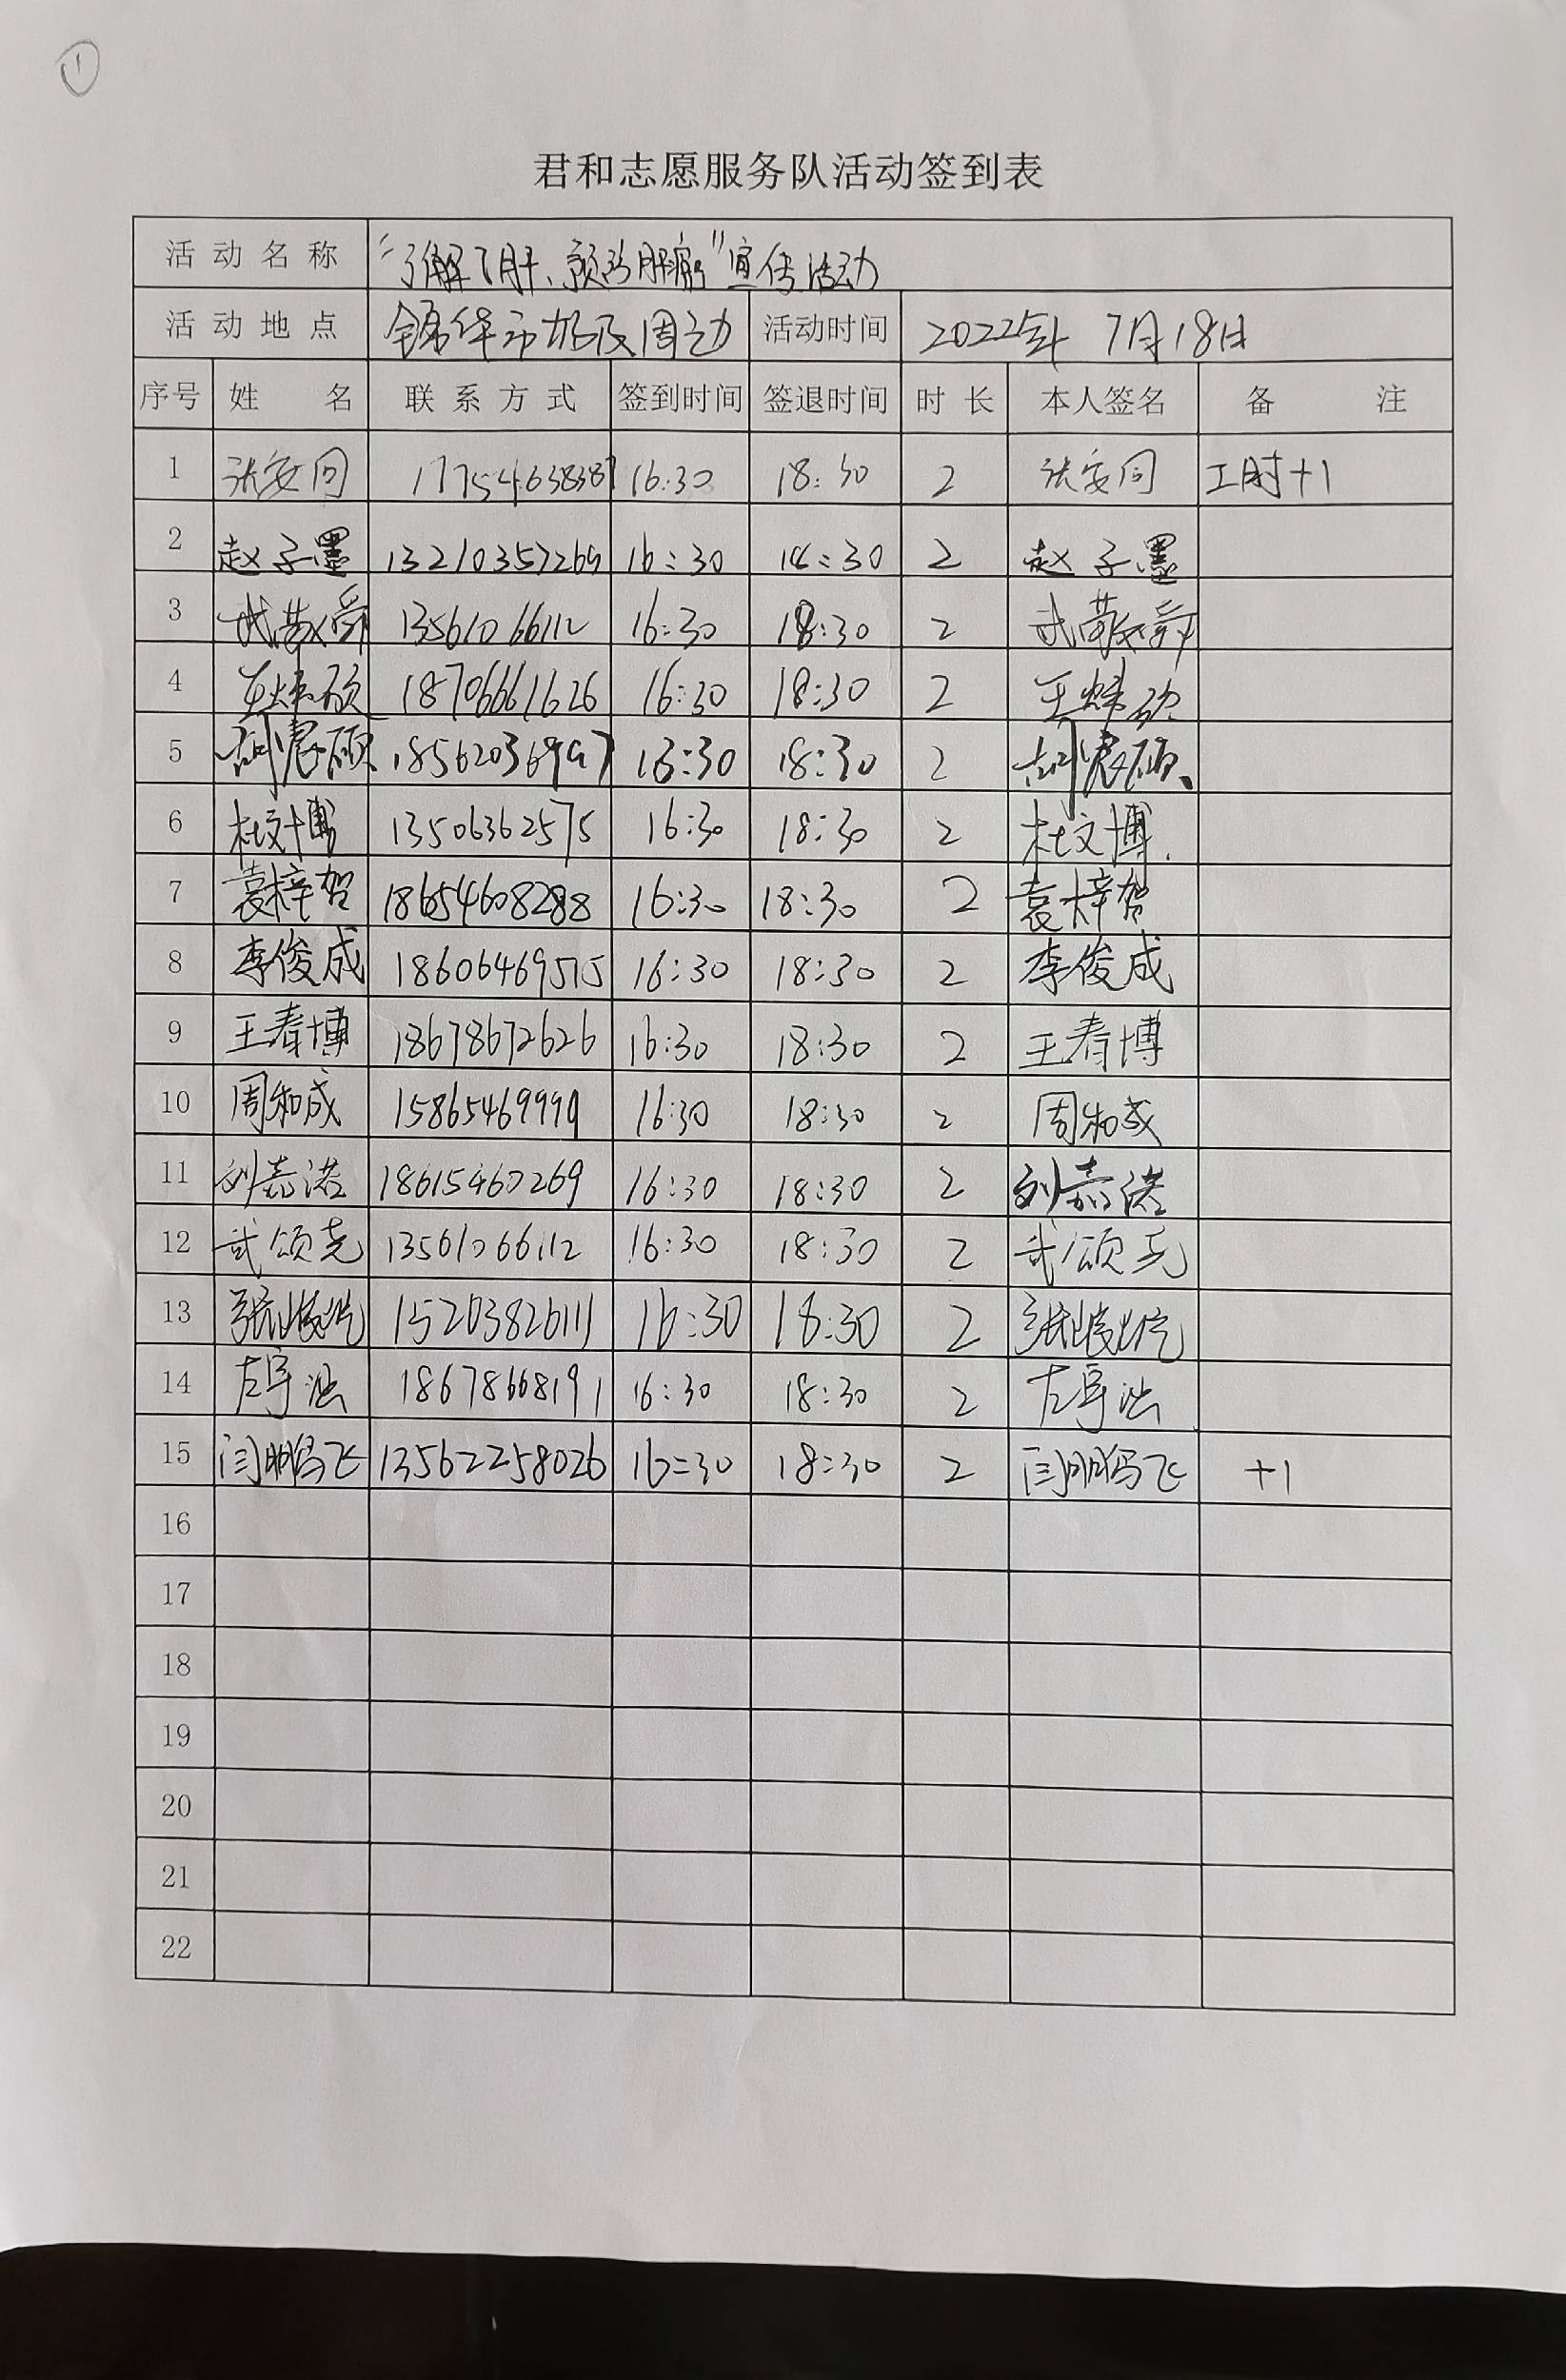 ①
君和志愿服务队活动签到表
活动名称 “了解丫肝、预防肝病”宣传活动
活动地点 锦华市场及周边 活动时间 2022年 7月18日
序号 姓名 联系方式 签到时间 签退时间 时长 本人签名 备注
1 张安同 17754638387 16:30 18:30 2 张安同 工时+1
2 赵子墨 13210357269 16:30 18:30 2 赵子墨
3 武敬舜 13561066112 16:30 18:30 2 武敬舜
4 王炜硕 18706661626 16:30 18:30 2 王炜硕
5 胡宸硕 18562036997 16:30 18:30 2 胡宸硕
6 杜文博 13506362575 16:30 18:30 2 杜文博
7 袁梓贺 18654608288 16:30 18:30 2 袁梓贺
8 李俊成 18606469515 16:30 18:30 2 李俊成
9 王春博 18678672626 16:30 18:30 2 王春博
10 周和成 15865469999 16:30 18:30 2 周和成
11 刘嘉诺 18615460269 16:30 18:30 2 刘嘉诺
12 武颂尧 13561066112 16:30 18:30 2 武颂尧
13 张峻屹 15203826111 16:30 18:30 2 张峻屹
14 左宇泓 18678668191 16:30 18:30 2 左宇泓
15 闫鹏飞 13562258026 16:30 18:30 2 闫鹏飞 +1
16
17
18
19
20
21
22